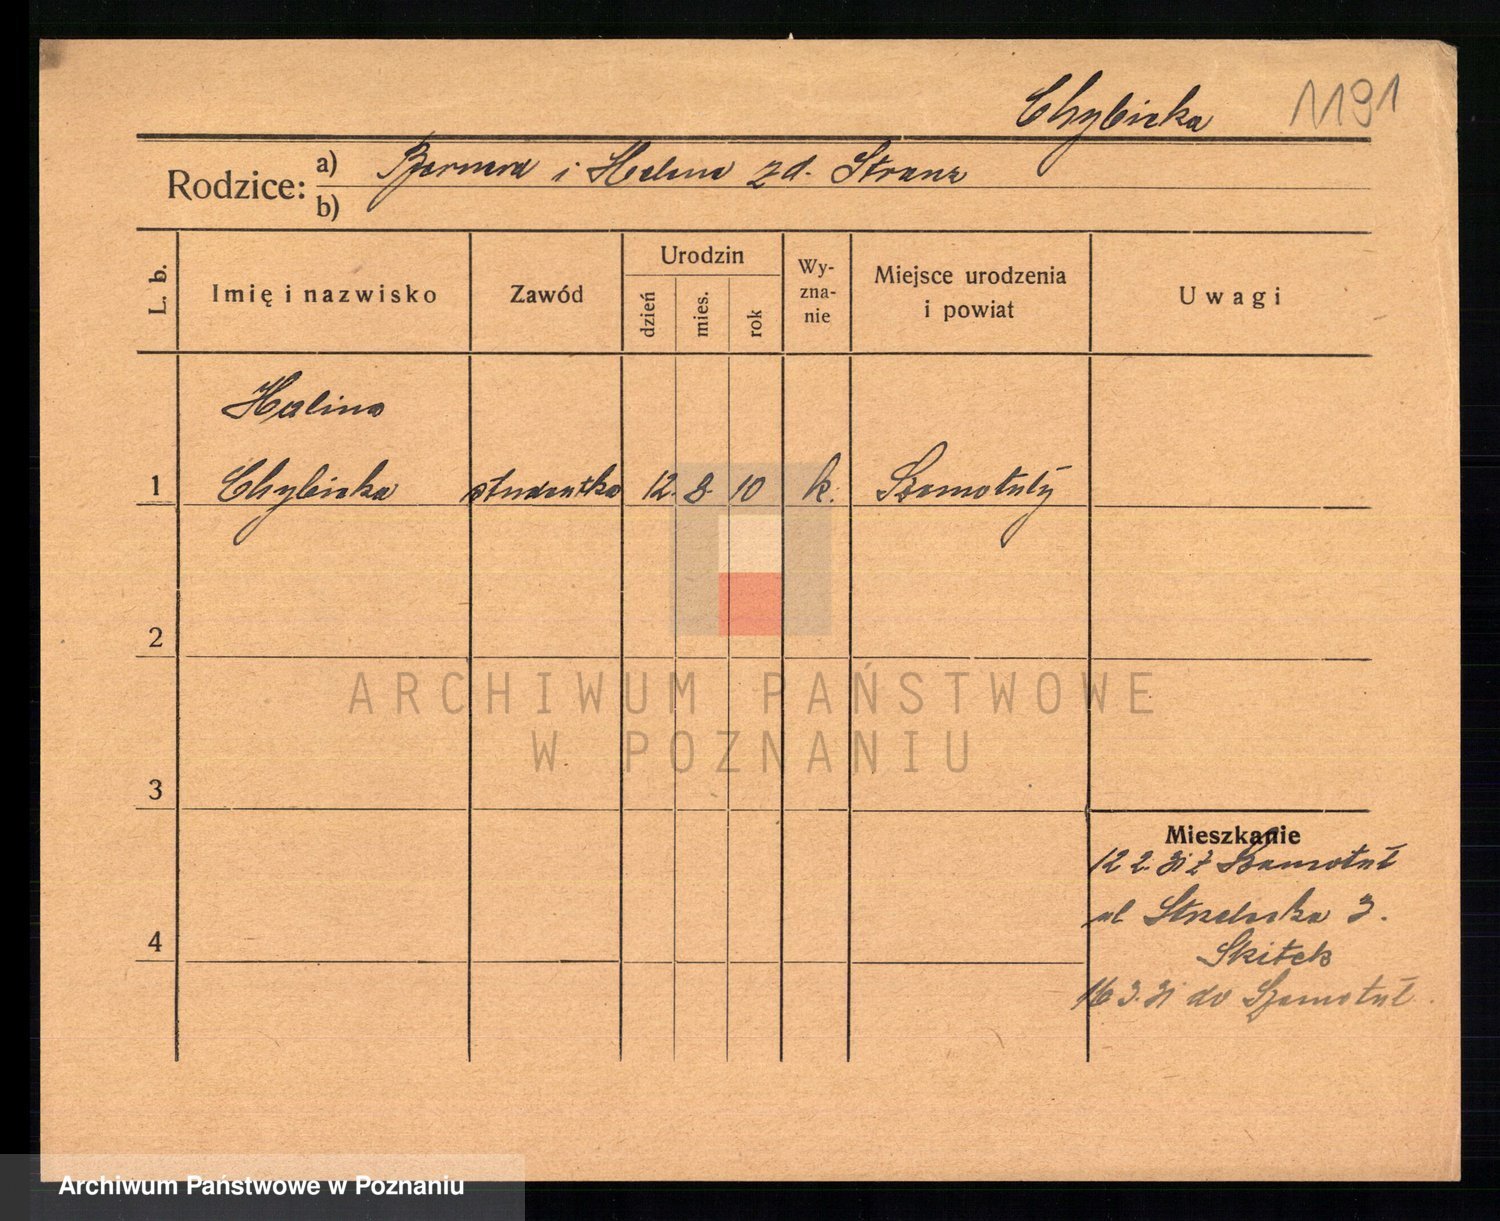 Chybicka 1191
Rodzice: a) i Helena zd. Stranz
b)
L. b. Imię i nazwisko Zawód Urodzin dzień mies. rok Wy-zna-nie Miejsce urodzenia i powiat Uwagi
Halina
1 Chybicka studentka 12. 8. 10 k. Szamotuły
2
ARCHIWUM PAŃSTWOWE
W POZNANIU
3
Mieszkanie
12 2. 31 z Szamotuł
ul Strzelecka 3.
4
Skitek
16 3. 31 do Szamotuł.
Archiwum Państwowe w Poznaniu